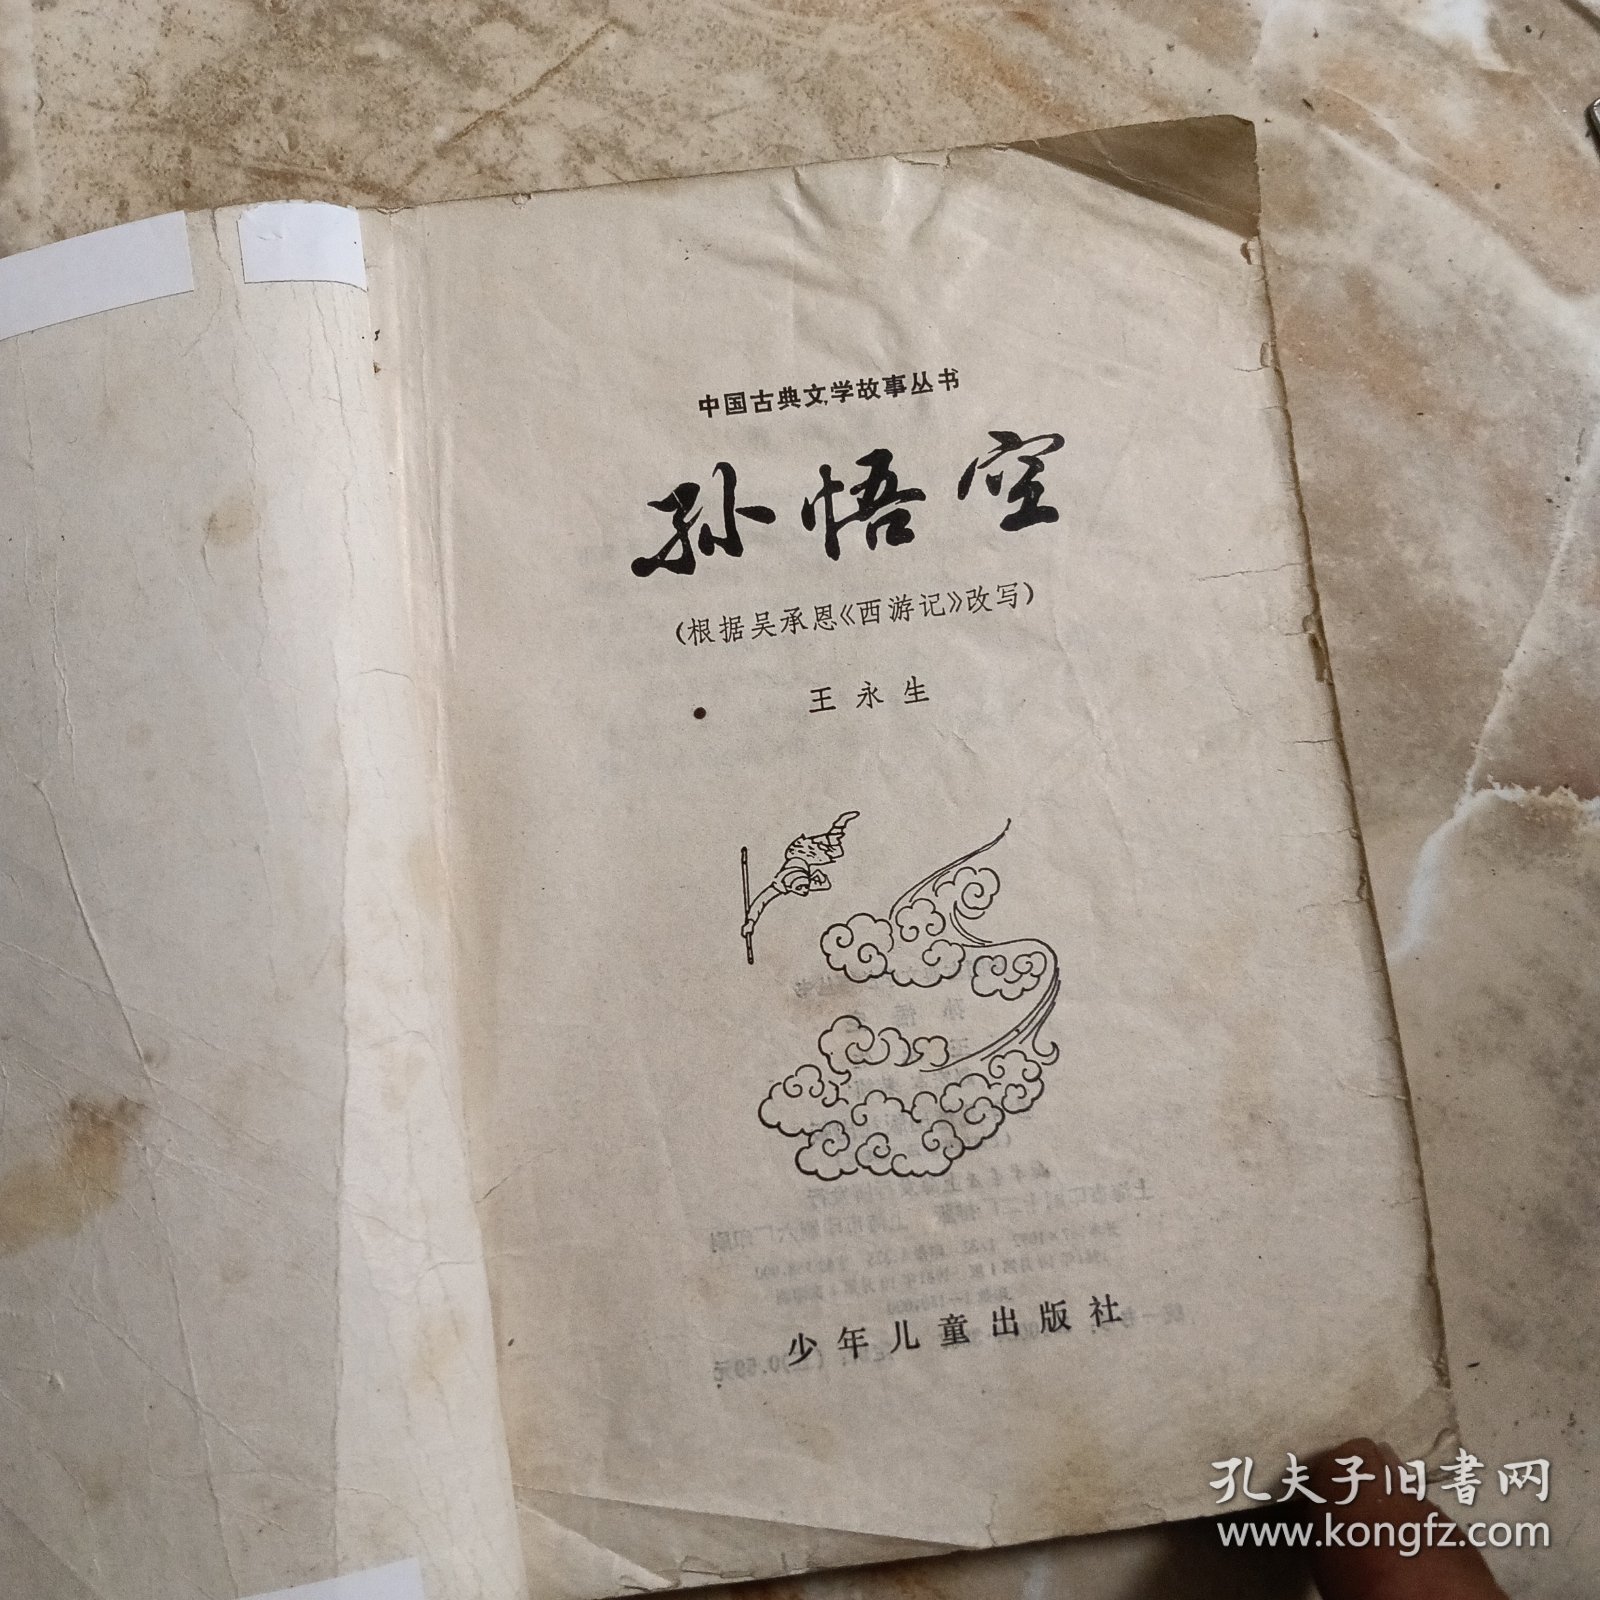 中国古典文学故事丛书
孙悟空
(根据吴承恩《西游记》改写)
王永生
少年儿童出版社
孔夫子旧书网
www.kongfz.com